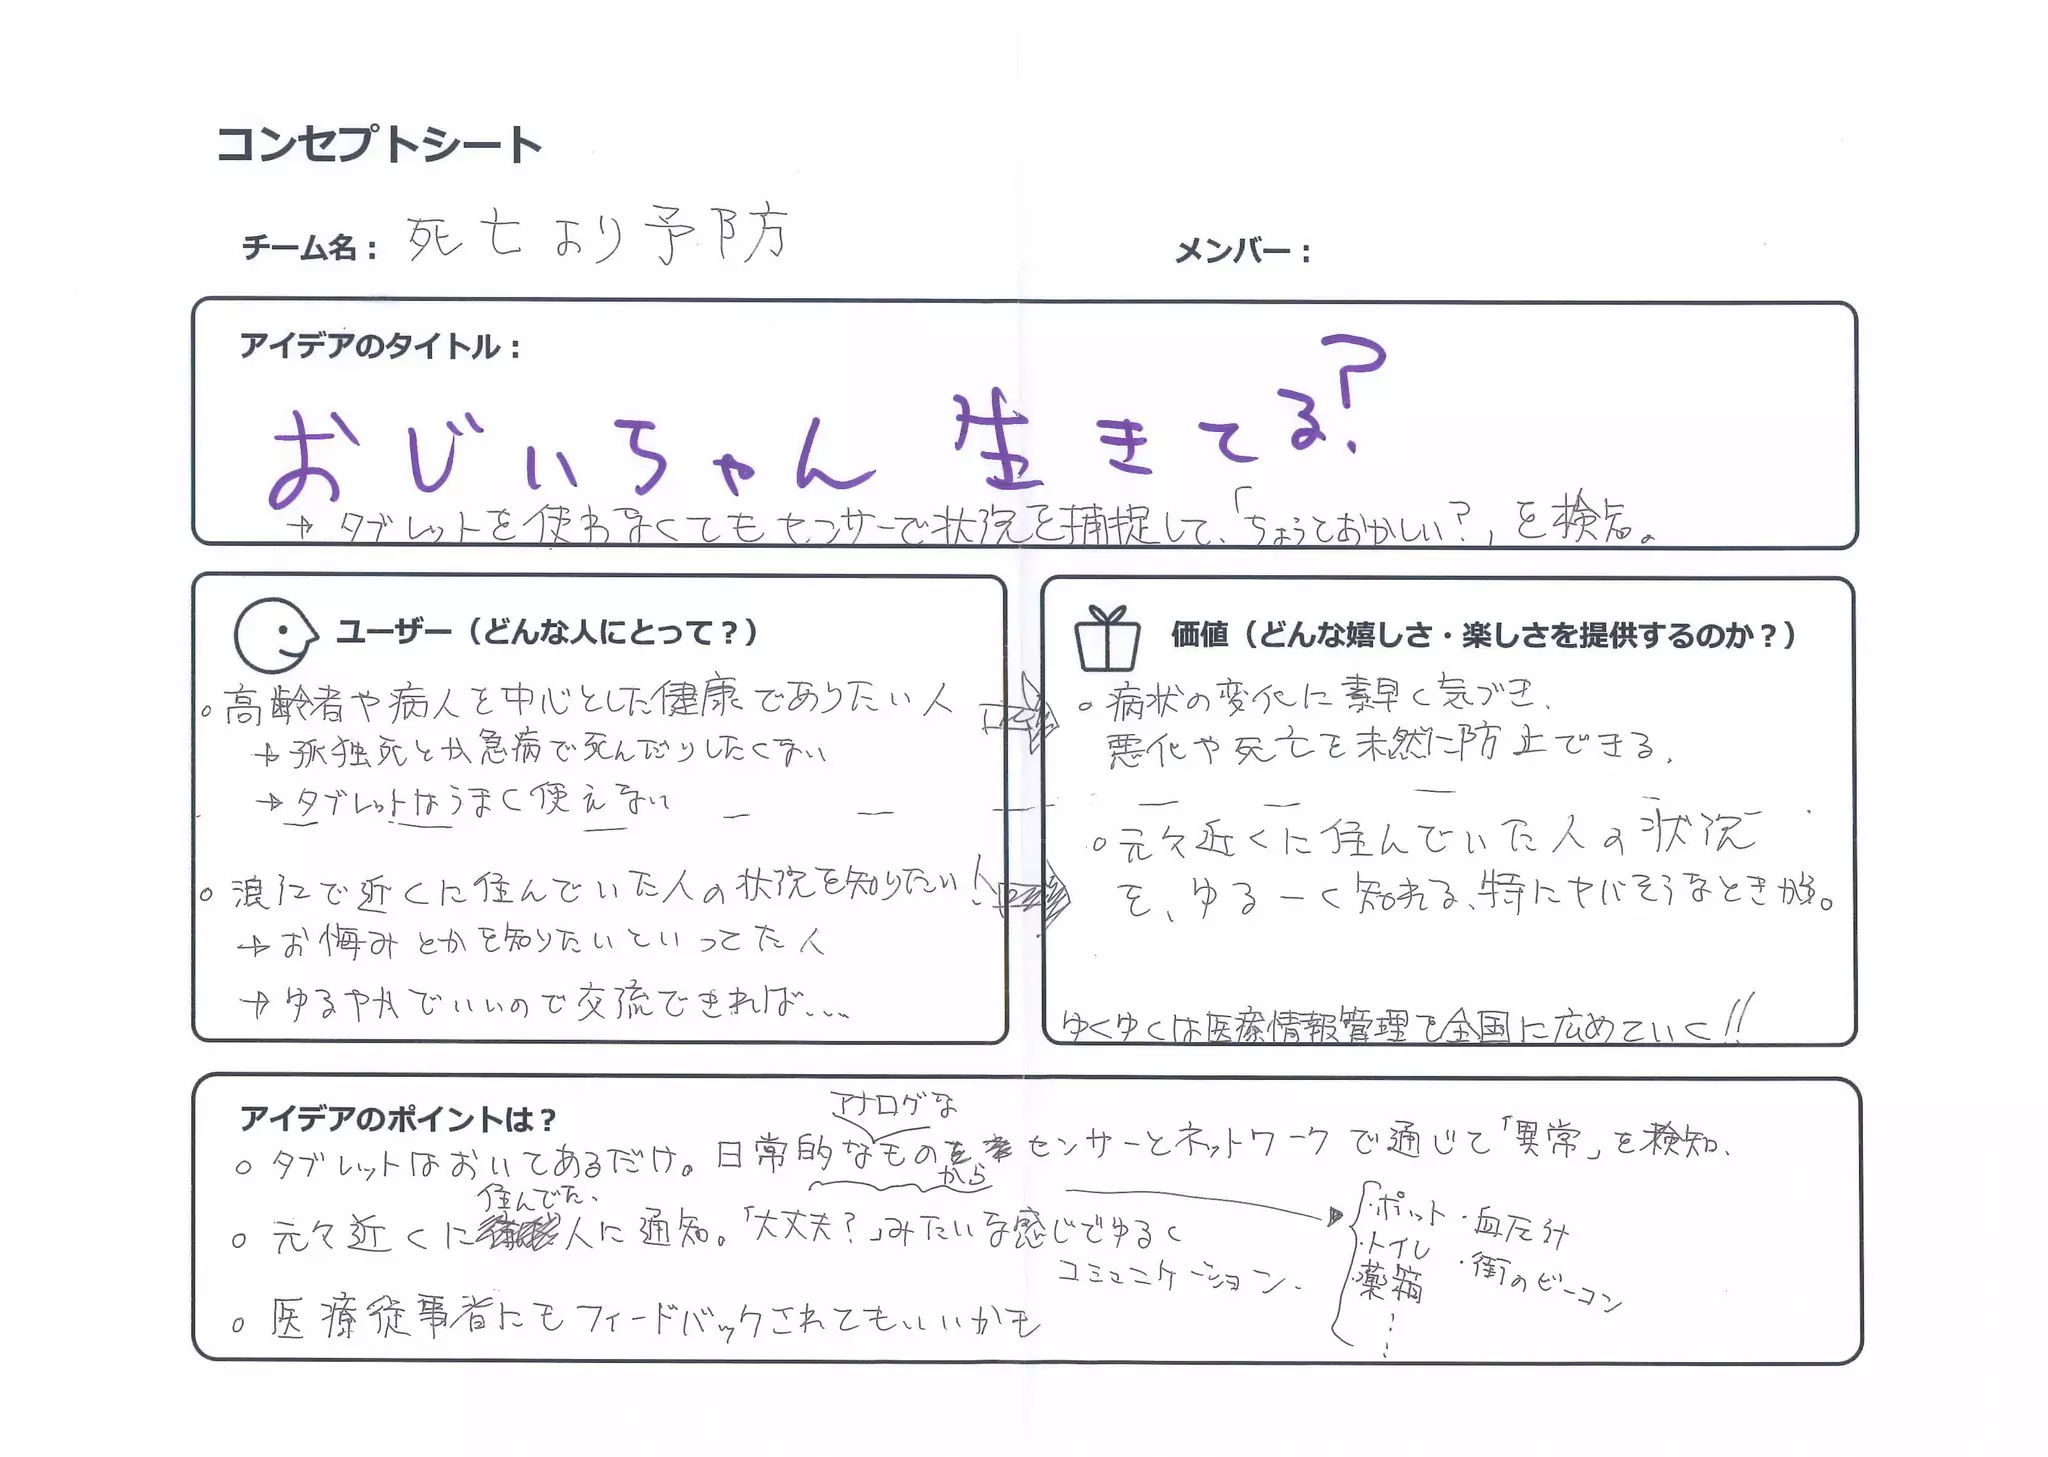 コンセプトシート
チーム名： 死亡より予防
メンバー：
アイデアのタイトル：
おじいちゃん 生きてる？
→ タブレットを使わなくてもセンサーで状況を捕捉して、「ちょっとおかしい？」を検知。
ユーザー（どんな人にとって？）
○ 高齢者や病人を中心とした健康でありたい人
→ 孤独死とか急病で死んだりしたくない
→ タブレットはうまく使えない
○ 浪江で近くに住んでいた人の状況を知りたい！
→ お悔みとかを知りたいといってた人
→ ゆるやかでいいので交流できれば...
価値（どんな嬉しさ・楽しさを提供するのか？）
○ 病状の変化に素早く気づき、
悪化や死亡を未然に防止できる。
○ 元々近くに住んでいた人の状況
を、ゆるーく知れる、特にヤバそうなときが。
ゆくゆくは医療情報管理で全国に広めていく!!
アイデアのポイントは？
アナログな
○ タブレットはおいてあるだけ。日常的なものから センサーとネットワークで通じて「異常」を検知。
○ 元々近くに住んでた人に通知。「大丈夫？」みたいな感じでゆるく
コミュニケーション.
○ 医療従事者にもフィードバックされてもいいかも
・ポット ・血圧計
・トイレ ・街のビーコン
・薬箱